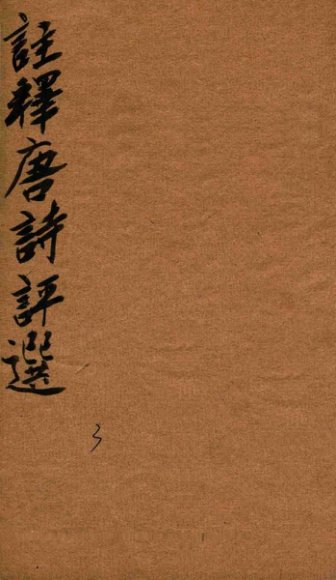 註釋唐詩評選
3